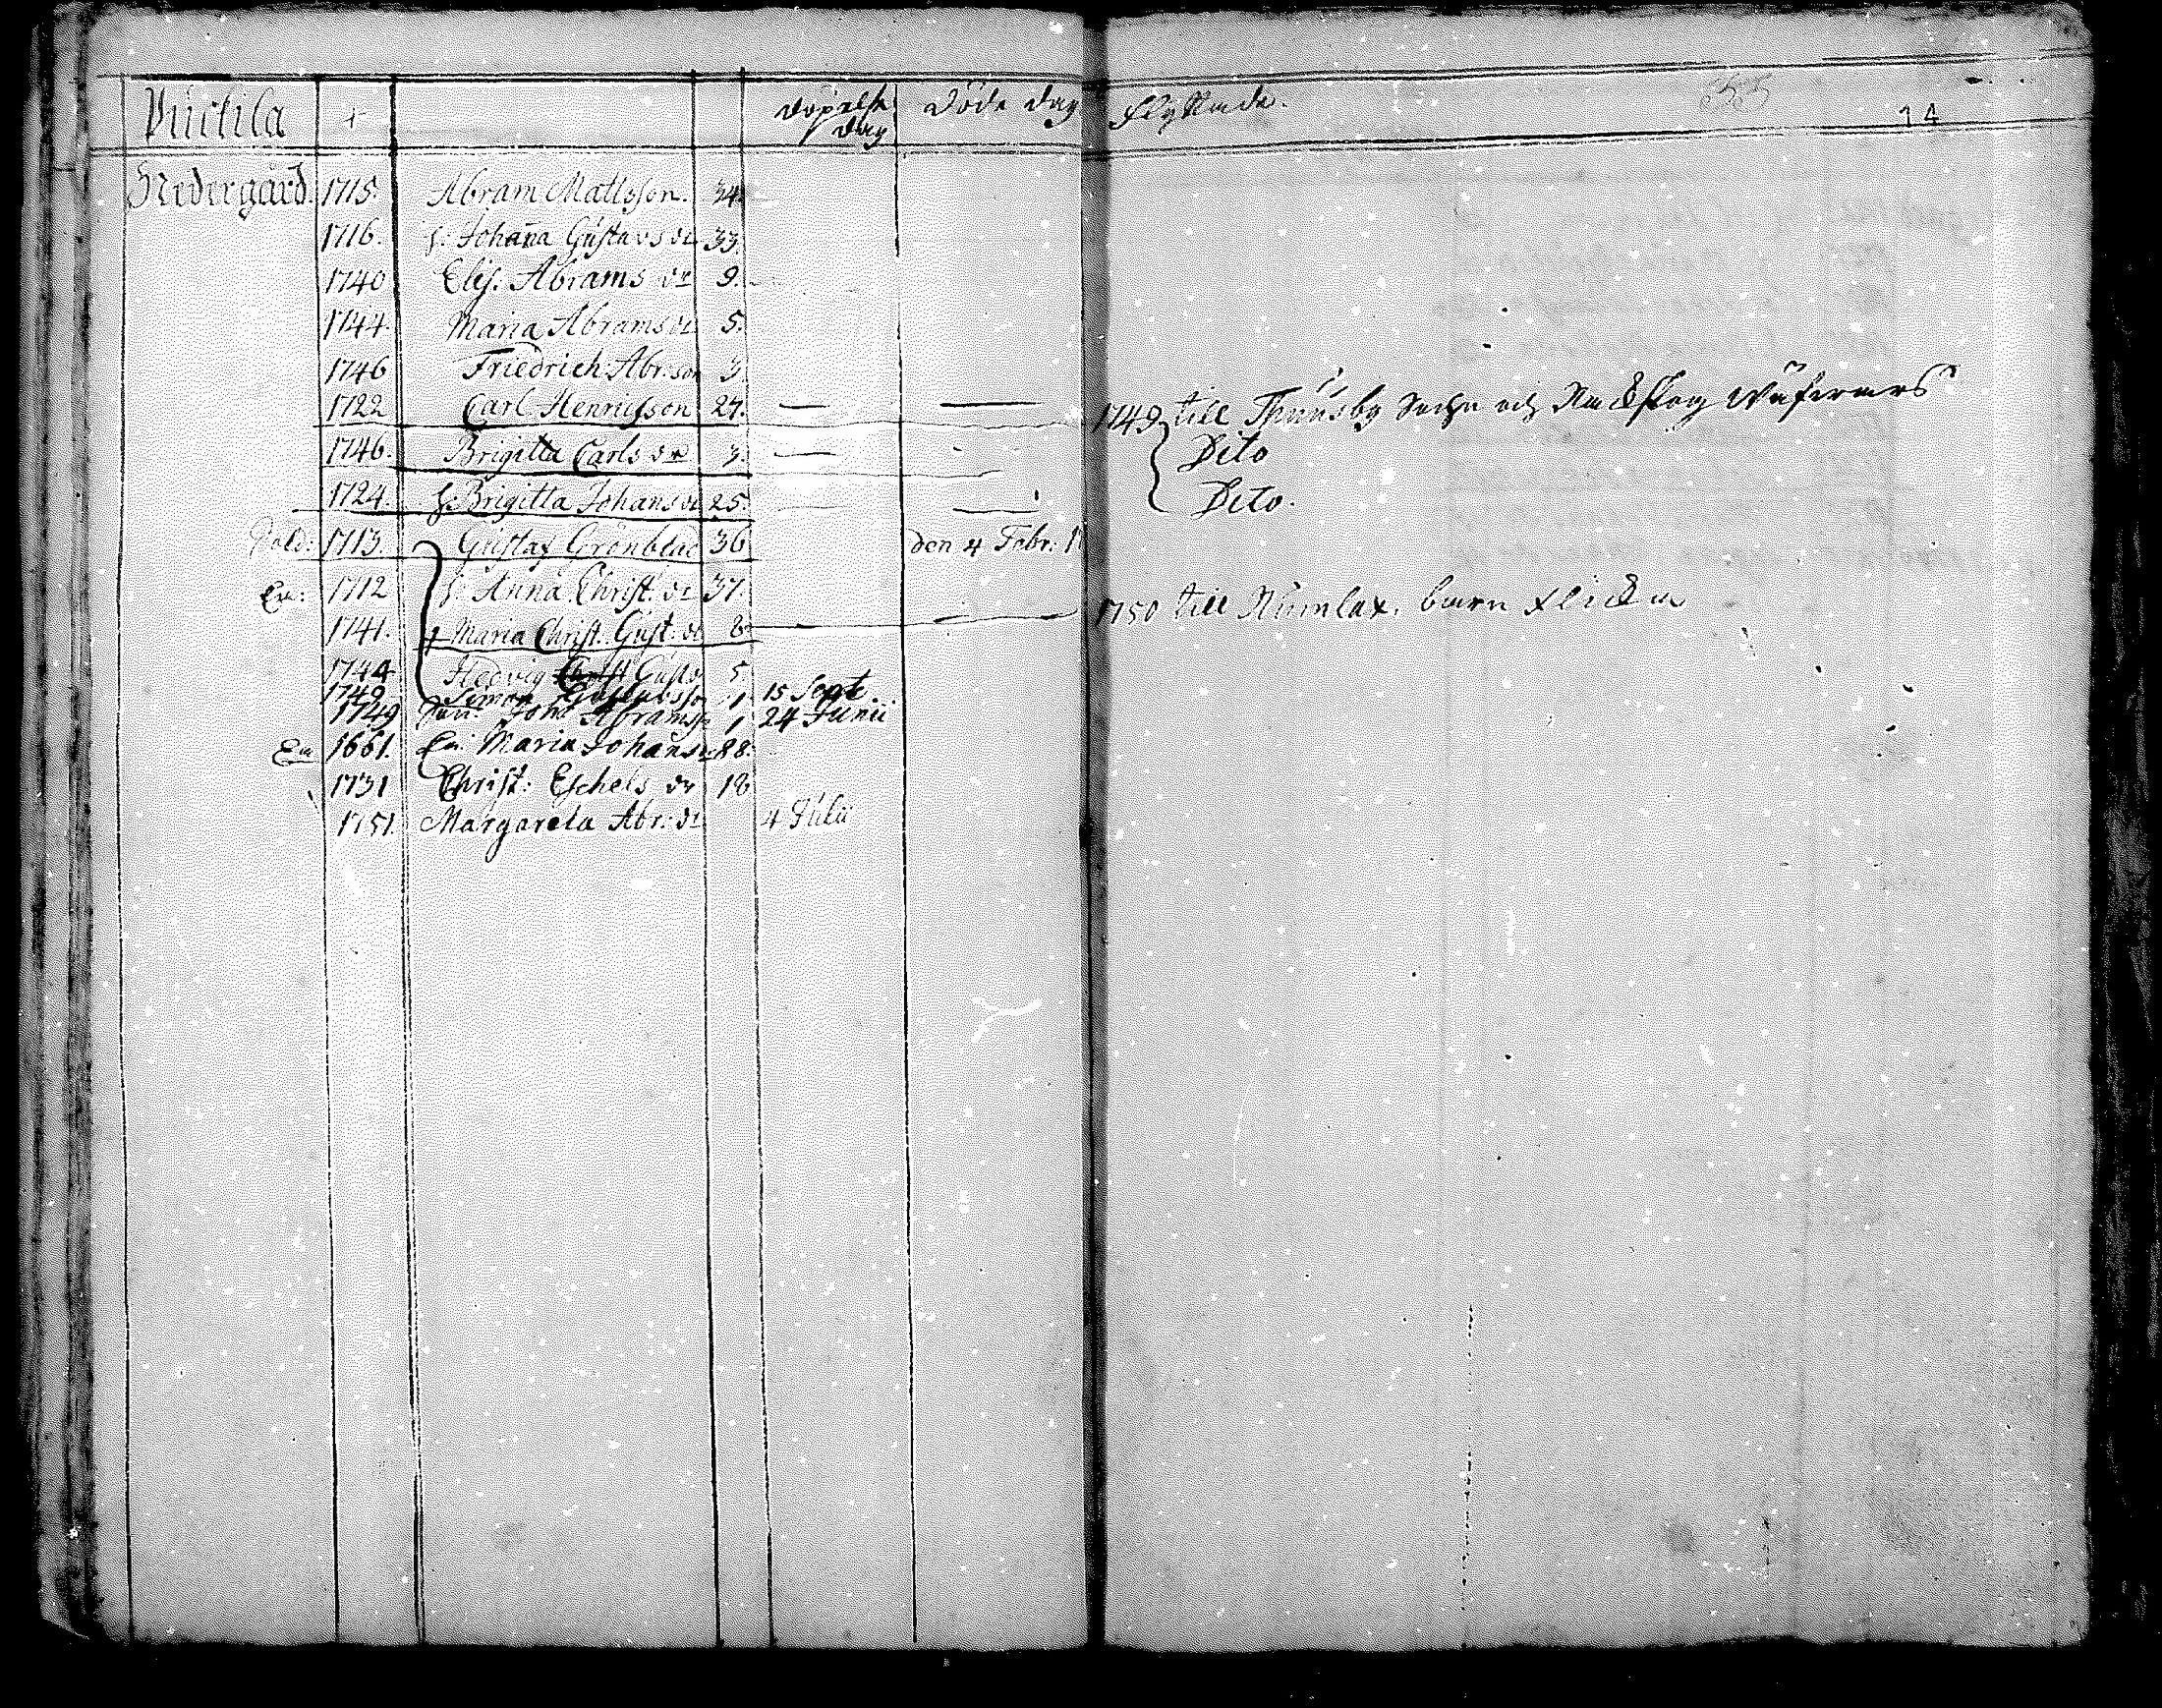 Vuctila + döpelse dag Döde dag flyttade. 14
Nedergård. 1715. Abram Mattsson. 34.
1716. h: Johana Gustavs dr 33.
1740 Elis. Abrams dr 9.
1744. Maria Abrams dr 5.
1746 Friedrich Abr. son 3
1722 Carl Henricsson 27. — — 1749 till Thuusby
1746. Brigitta Carls dr 3. — Dito
1724. h: Brigitta Johans dr 25. Dito.
Sold: 1713. Gustaf Grönblad 36 den 4 Febr:
Enk: 1712 h: Anna Christ. dr 37.
1741. + Maria Christ. Gust: dr 8 — — 1750 till Numlax.
1744 Hedvig Gust 5
1749. Simon Gustavsson 1. 15 Sept
1749 Joh: Abramss 1 24 Junii
Enk 1661. Enk: Maria Johans dr 88.
1731 Christ: Eschels dr 18
1751. Margareta Abr: dr 4 Julii